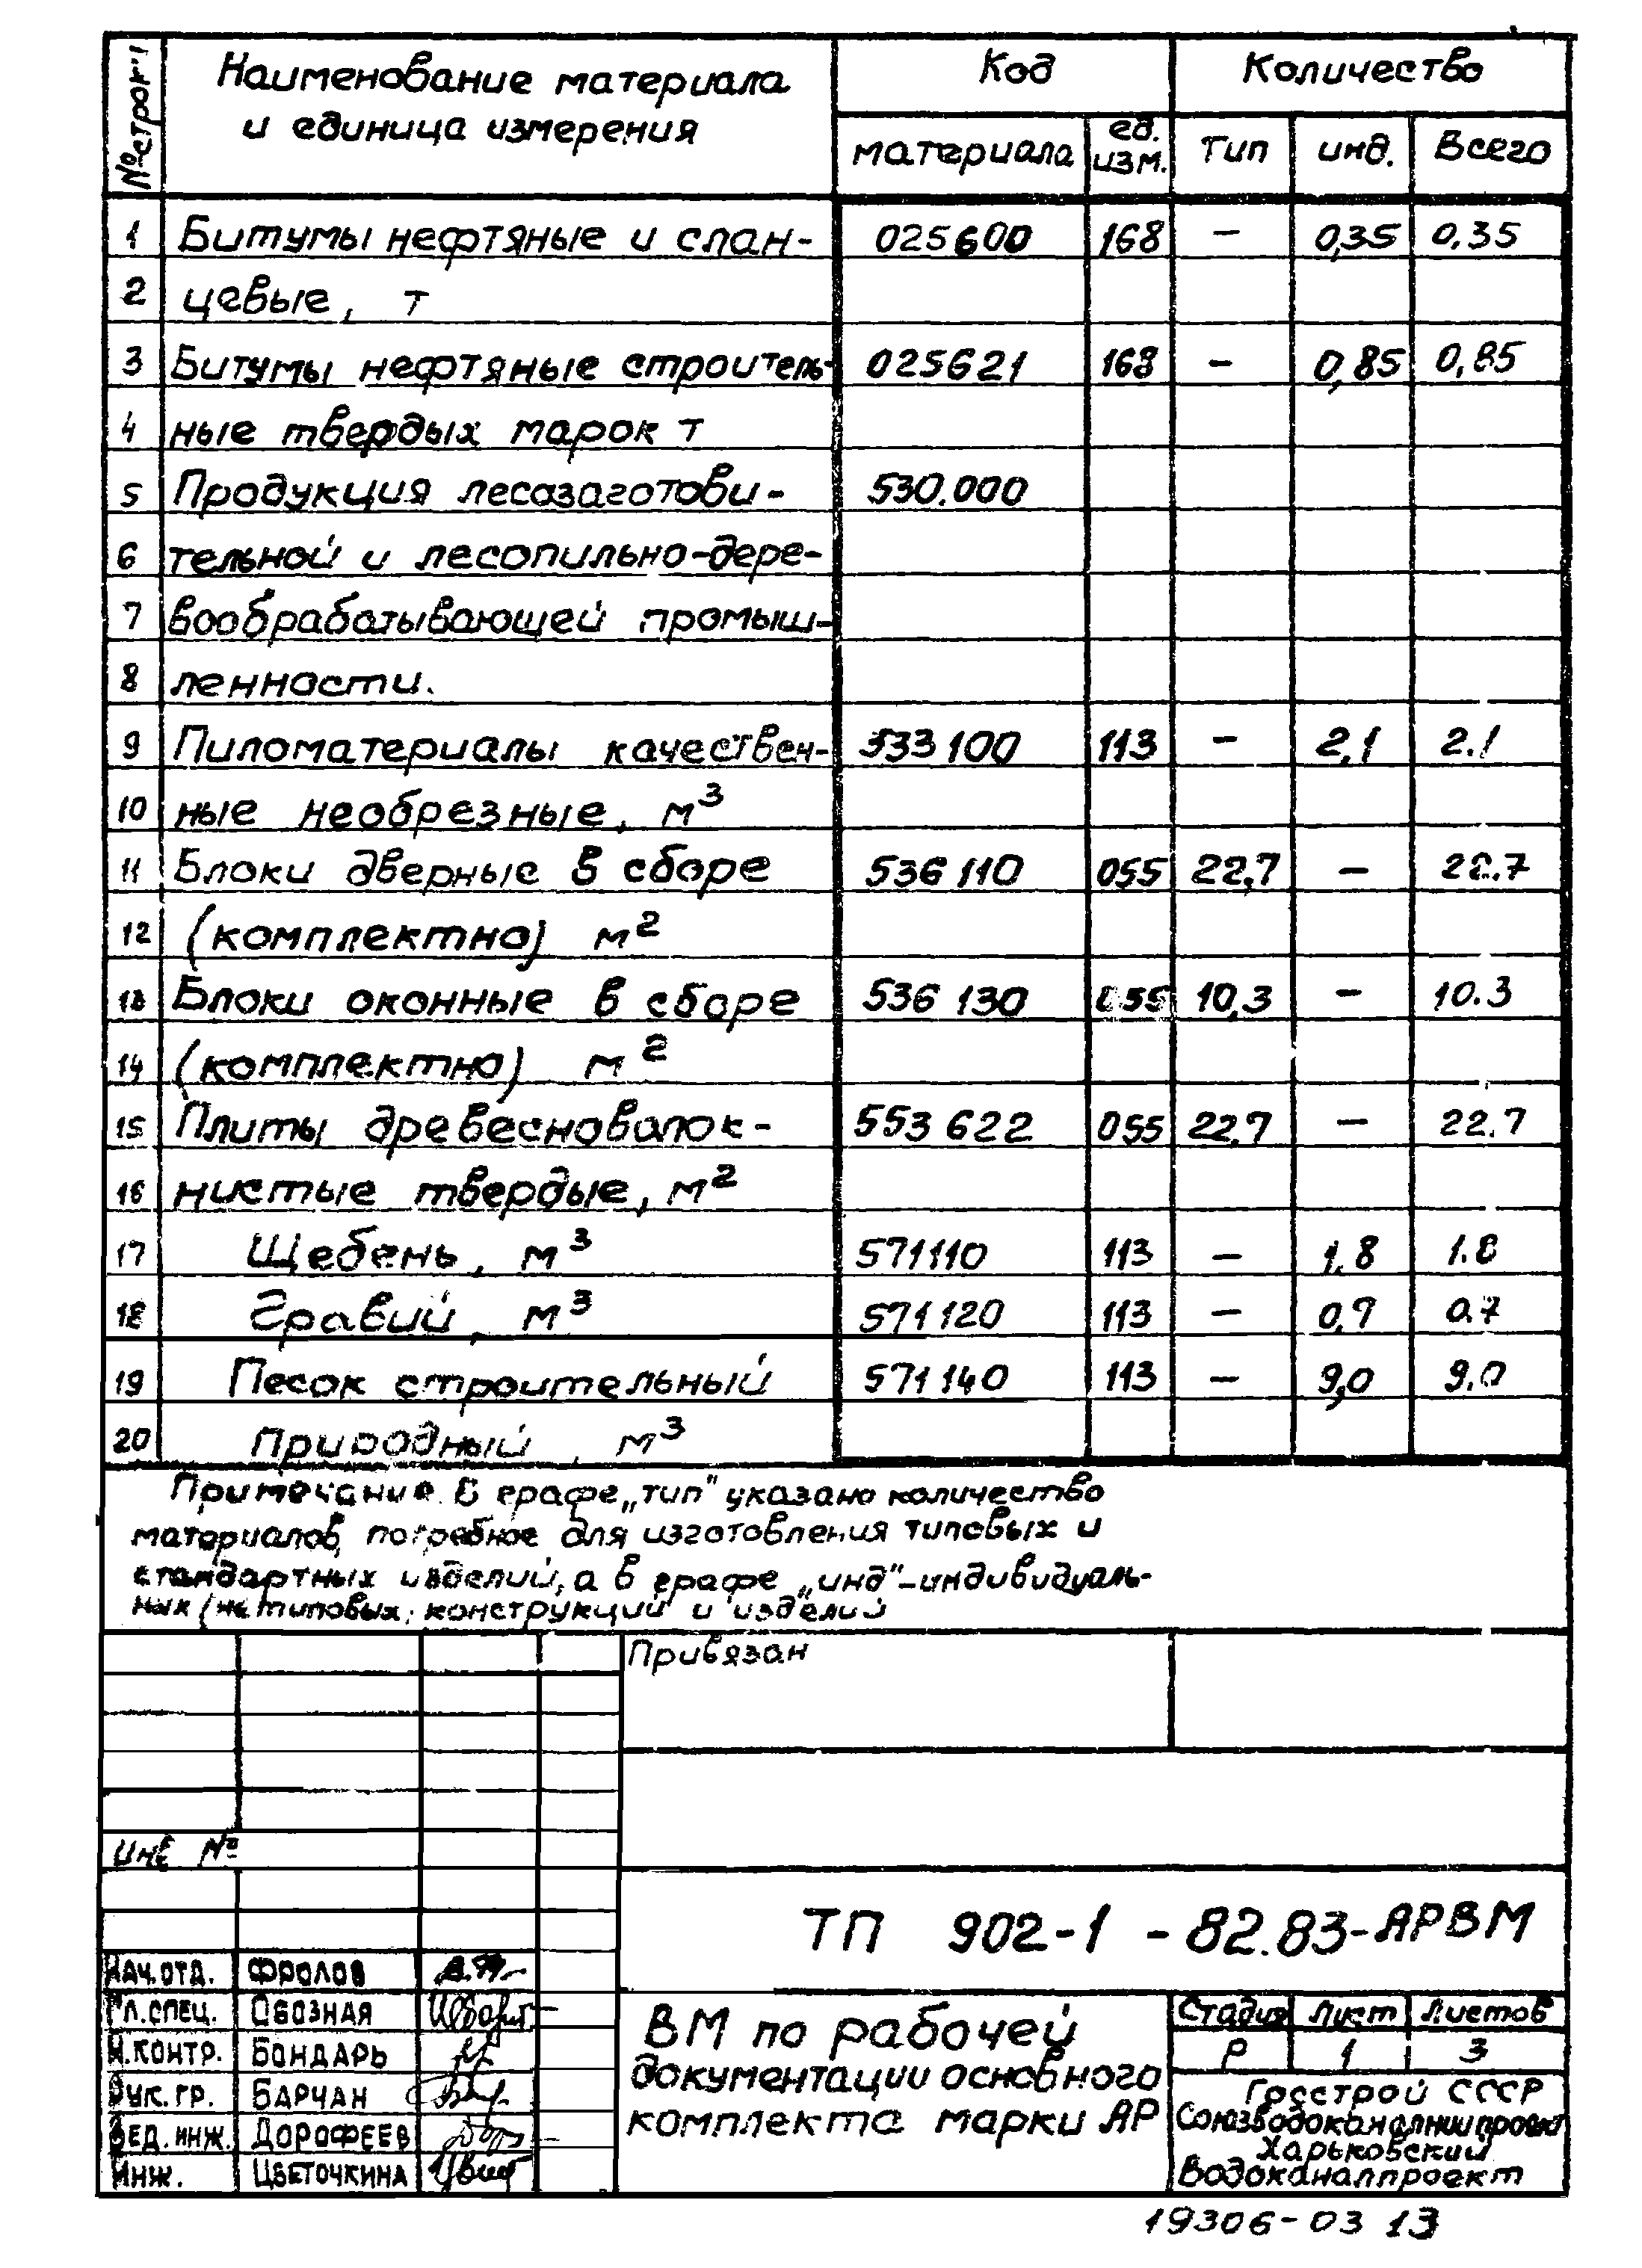 № строки Наименование материала и единица измерения Код Количество
материала ед. изм. тип инд. Всего
1 Битумы нефтяные и слан- 025600 168 – 0,35 0,35
2 цевые, т
3 Битумы нефтяные строитель- 025621 168 – 0,85 0,85
4 ные твердых марок т
5 Продукция лесозаготови- 530.000
6 тельной и лесопильно-дере-
7 вообрабатывающей промыш-
8 ленности.
9 Пиломатериалы качествен- 533100 113 – 2,1 2.1
10 ные необрезные, м³
11 Блоки дверные в сборе 536110 055 22,7 – 22.7
12 (комплектно) м²
13 Блоки оконные в сборе 536130 055 10,3 – 10.3
14 (комплектно) м²
15 Плиты древесноволок- 553622 055 22,7 – 22.7
16 нистые твердые, м²
17 Щебень, м³ 571110 113 – 1.8 1.8
18 Гравий, м³ 571120 113 – 0,7 0.7
19 Песок строительный 571140 113 – 9,0 9.0
20 Природный, м³
Примечание. В графе „тип" указано количество
материалов, потребное для изготовления типовых и
стандартных изделий, а в графе „инд"-индивидуаль-
ных (нетиповых) конструкций и изделий
Привязан
Инв №
ТП 902-1-82.83-АРВМ
Нач.отд. Фролов
Гл.спец. Обозная
Н.контр. Бондарь
Рук.гр. Барчан
Вед.инж. Дорофеев
Инж. Цветочкина
ВМ по рабочей
документации основного
комплекта марки АР
Стадия Лист Листов
Р 1 3
Госстрой СССР
Союзводоканалниипроект
Харьковский
Водоканалпроект
19306-03 13